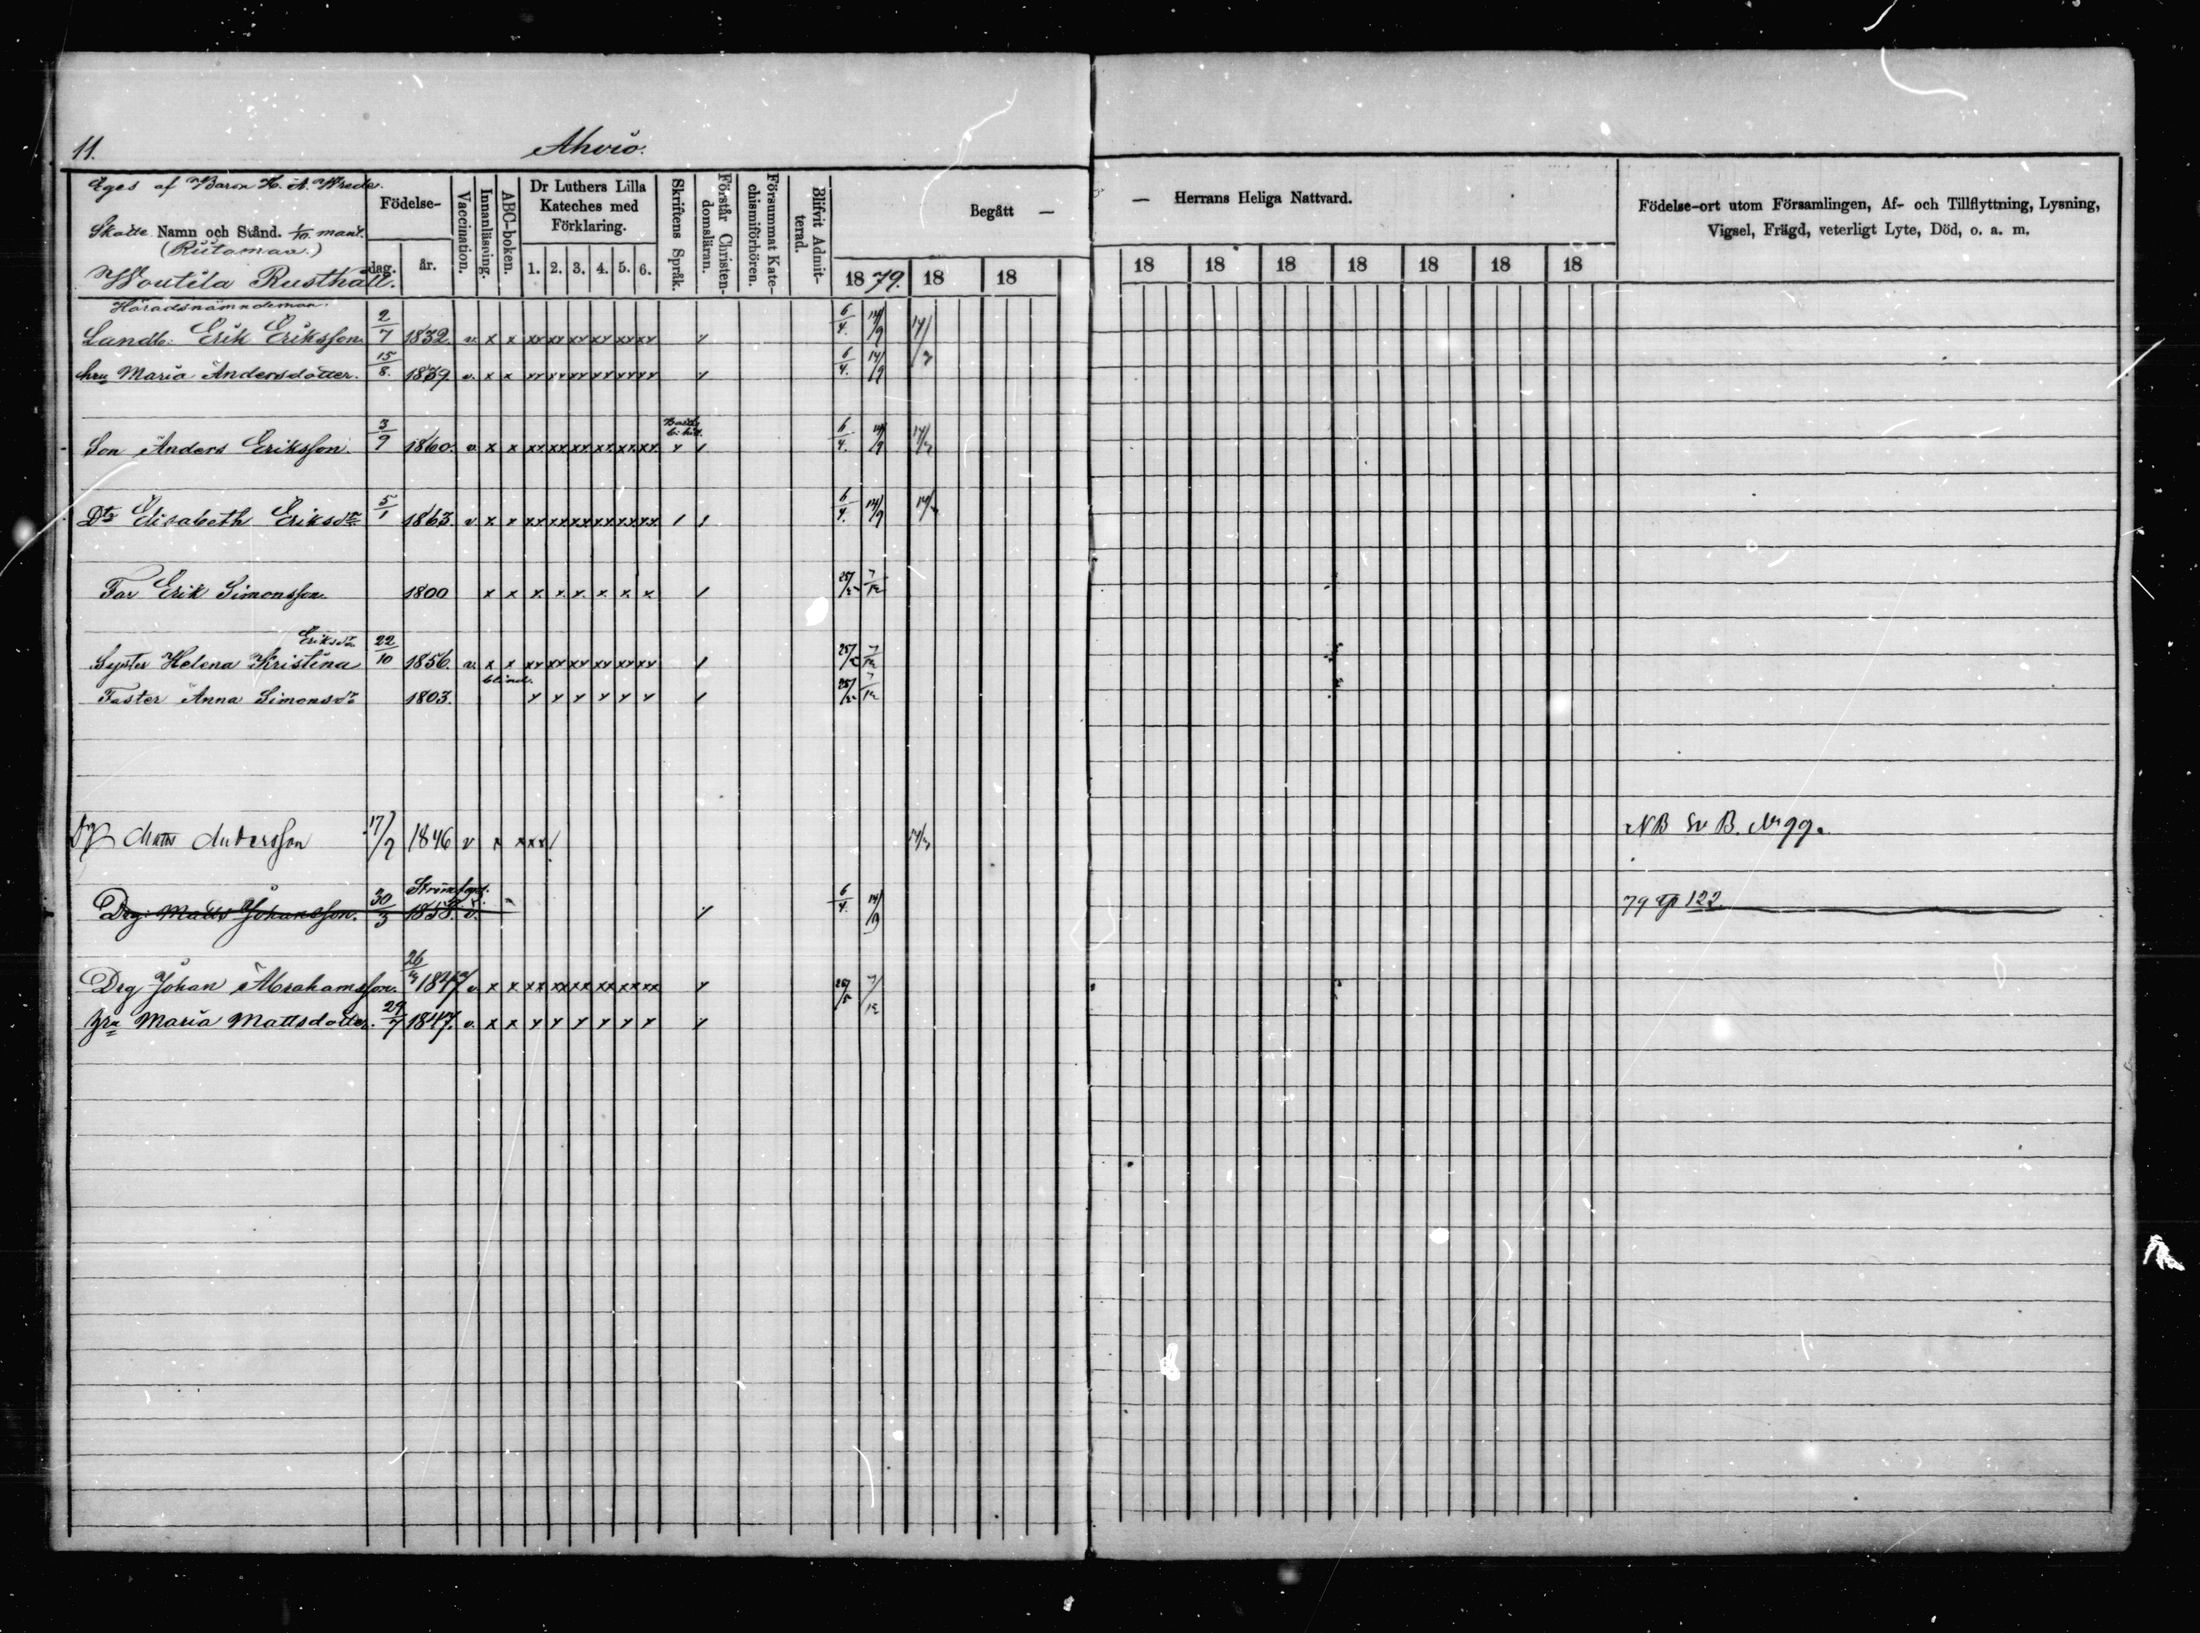 11.
Ahvio.
Eges af Baron H. A. Wrede.
Skatte Namn och Stånd. 1/10 mant.
(Riitamaa.)
Woutila Rusthåll.
Födelse-
dag.
år.
Vaccination.
Innanläsning.
ABC-boken.
Dr Luthers Lilla Kateches med Förklaring.
1. 2. 3. 4. 5. 6.
Skriftens Språk.
Förstår Christendomsläran.
Försummat Katechismiförhören.
Blifvit Admitterad.
Begått —
1879. 18 18
— Herrans Heliga Nattvard.
18 18 18 18 18 18 18
Födelse-ort utom Församlingen, Af- och Tillflyttning, Lysning,
Vigsel, Frägd, veterligt Lyte, Död, o. a. m.
Häradsnämndeman.
Landb. Erik Eriksson. 2/7 1832. v. x x xx xx xx xx xx xx 6/4. 14/9 14/
hru Maria Andersdotter. 15/8. 1839. v. x x xx xx xx xx xx xx 6/4. 14/9
Son Anders Eriksson. 3/9 1860. v. x x xx xx xx xx xx xx 6/4. 14/9 14/
Dtr Elisabeth Eriksdr 5/1 1863. v. x x xx xx xx xx xx xx / / 6/4. 14/9 14/
Far Erik Simonsson. 1800 x x x x x x x x / 25/ 7/12
Eriksdr
Syster Helena Kristina 22/10 1856. v. x x xx xx xx xx xx xx / 25/ 7/12
blind.
Faster Anna Simonsdr 1803. / 25/ 7/12
Dg Matts Andersson 17/9 1846 v x xxx/ 14/ NB B. 99.
Strömfors.
Drg. Matts Johansson. 30/3 1858. v. 6/4. 14/9 79 122
Drg Johan Abrahamsson. 26/ 1847 v. x x xx xx xx xx xx xx 25/ 7/12
hru Maria Mattsdotter. 29/7 1847. v. x x